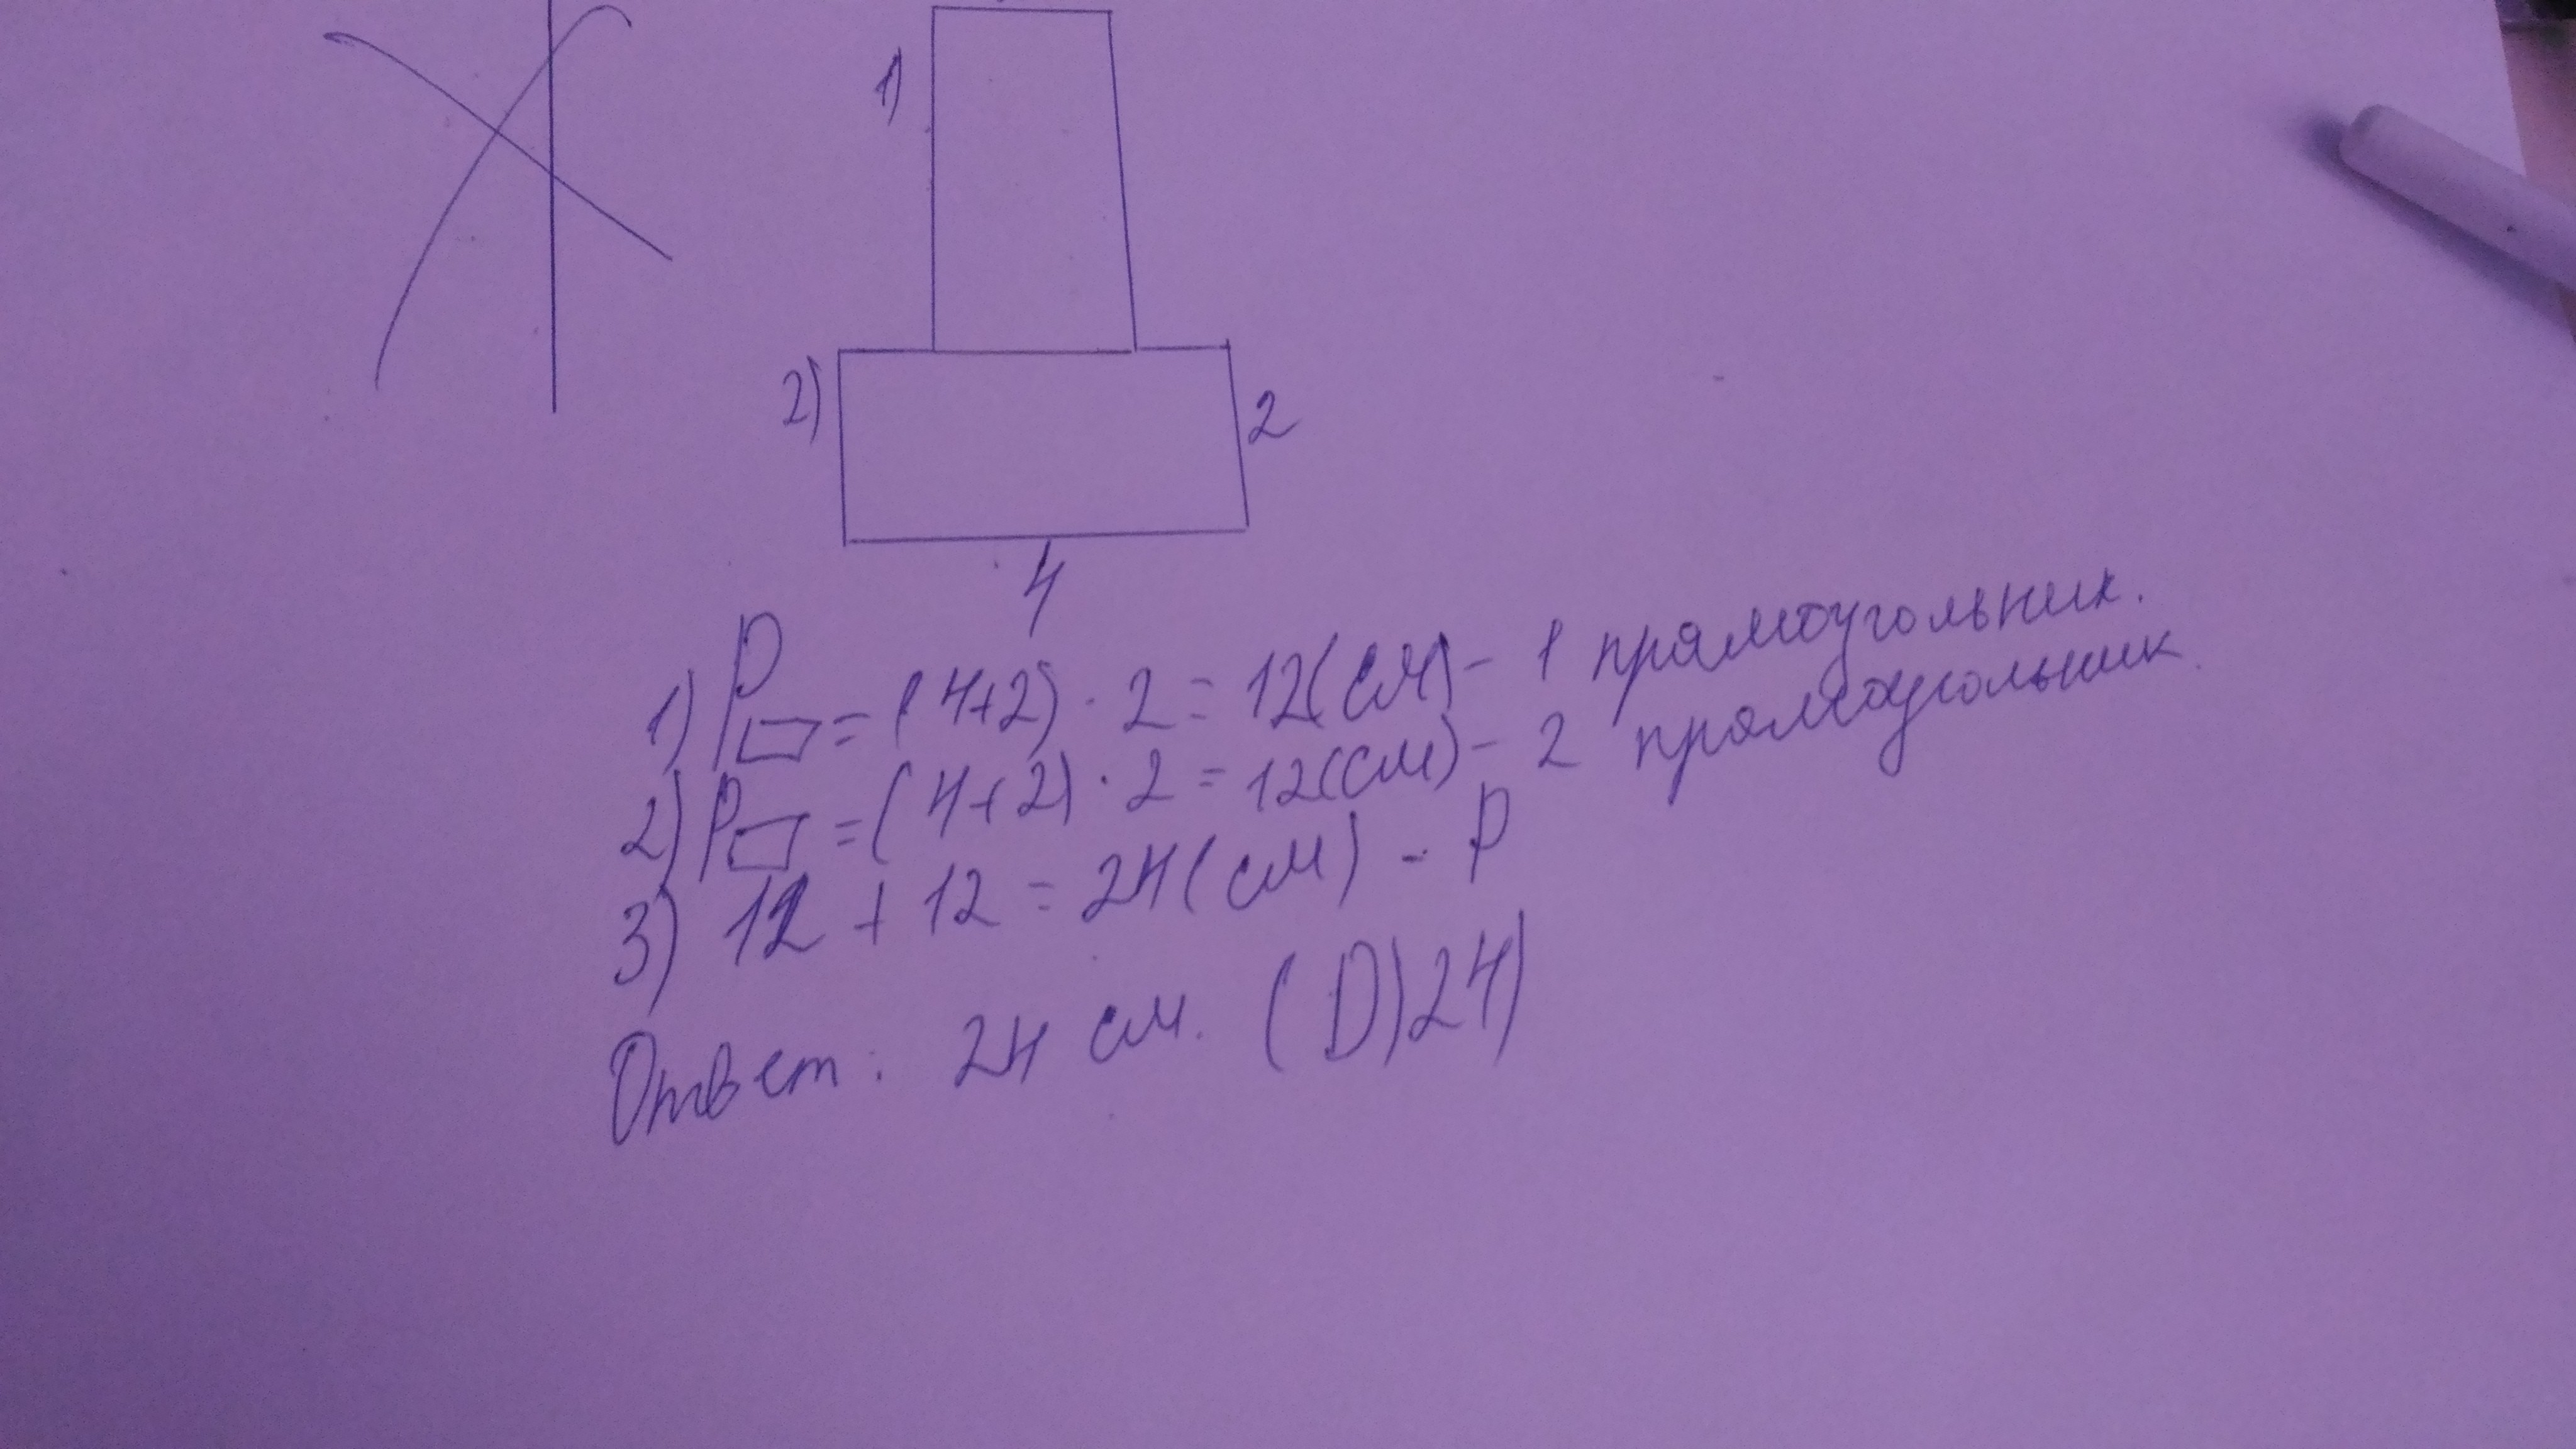 1)
2)
2
4
1) P▭ = (4+2) · 2 = 12(см) - 1 прямоугольник.
2) P▭ = (4+2) · 2 = 12(см) - 2 прямоугольник.
3) 12 + 12 = 24(см) - P
Ответ: 24 см. (D)24)